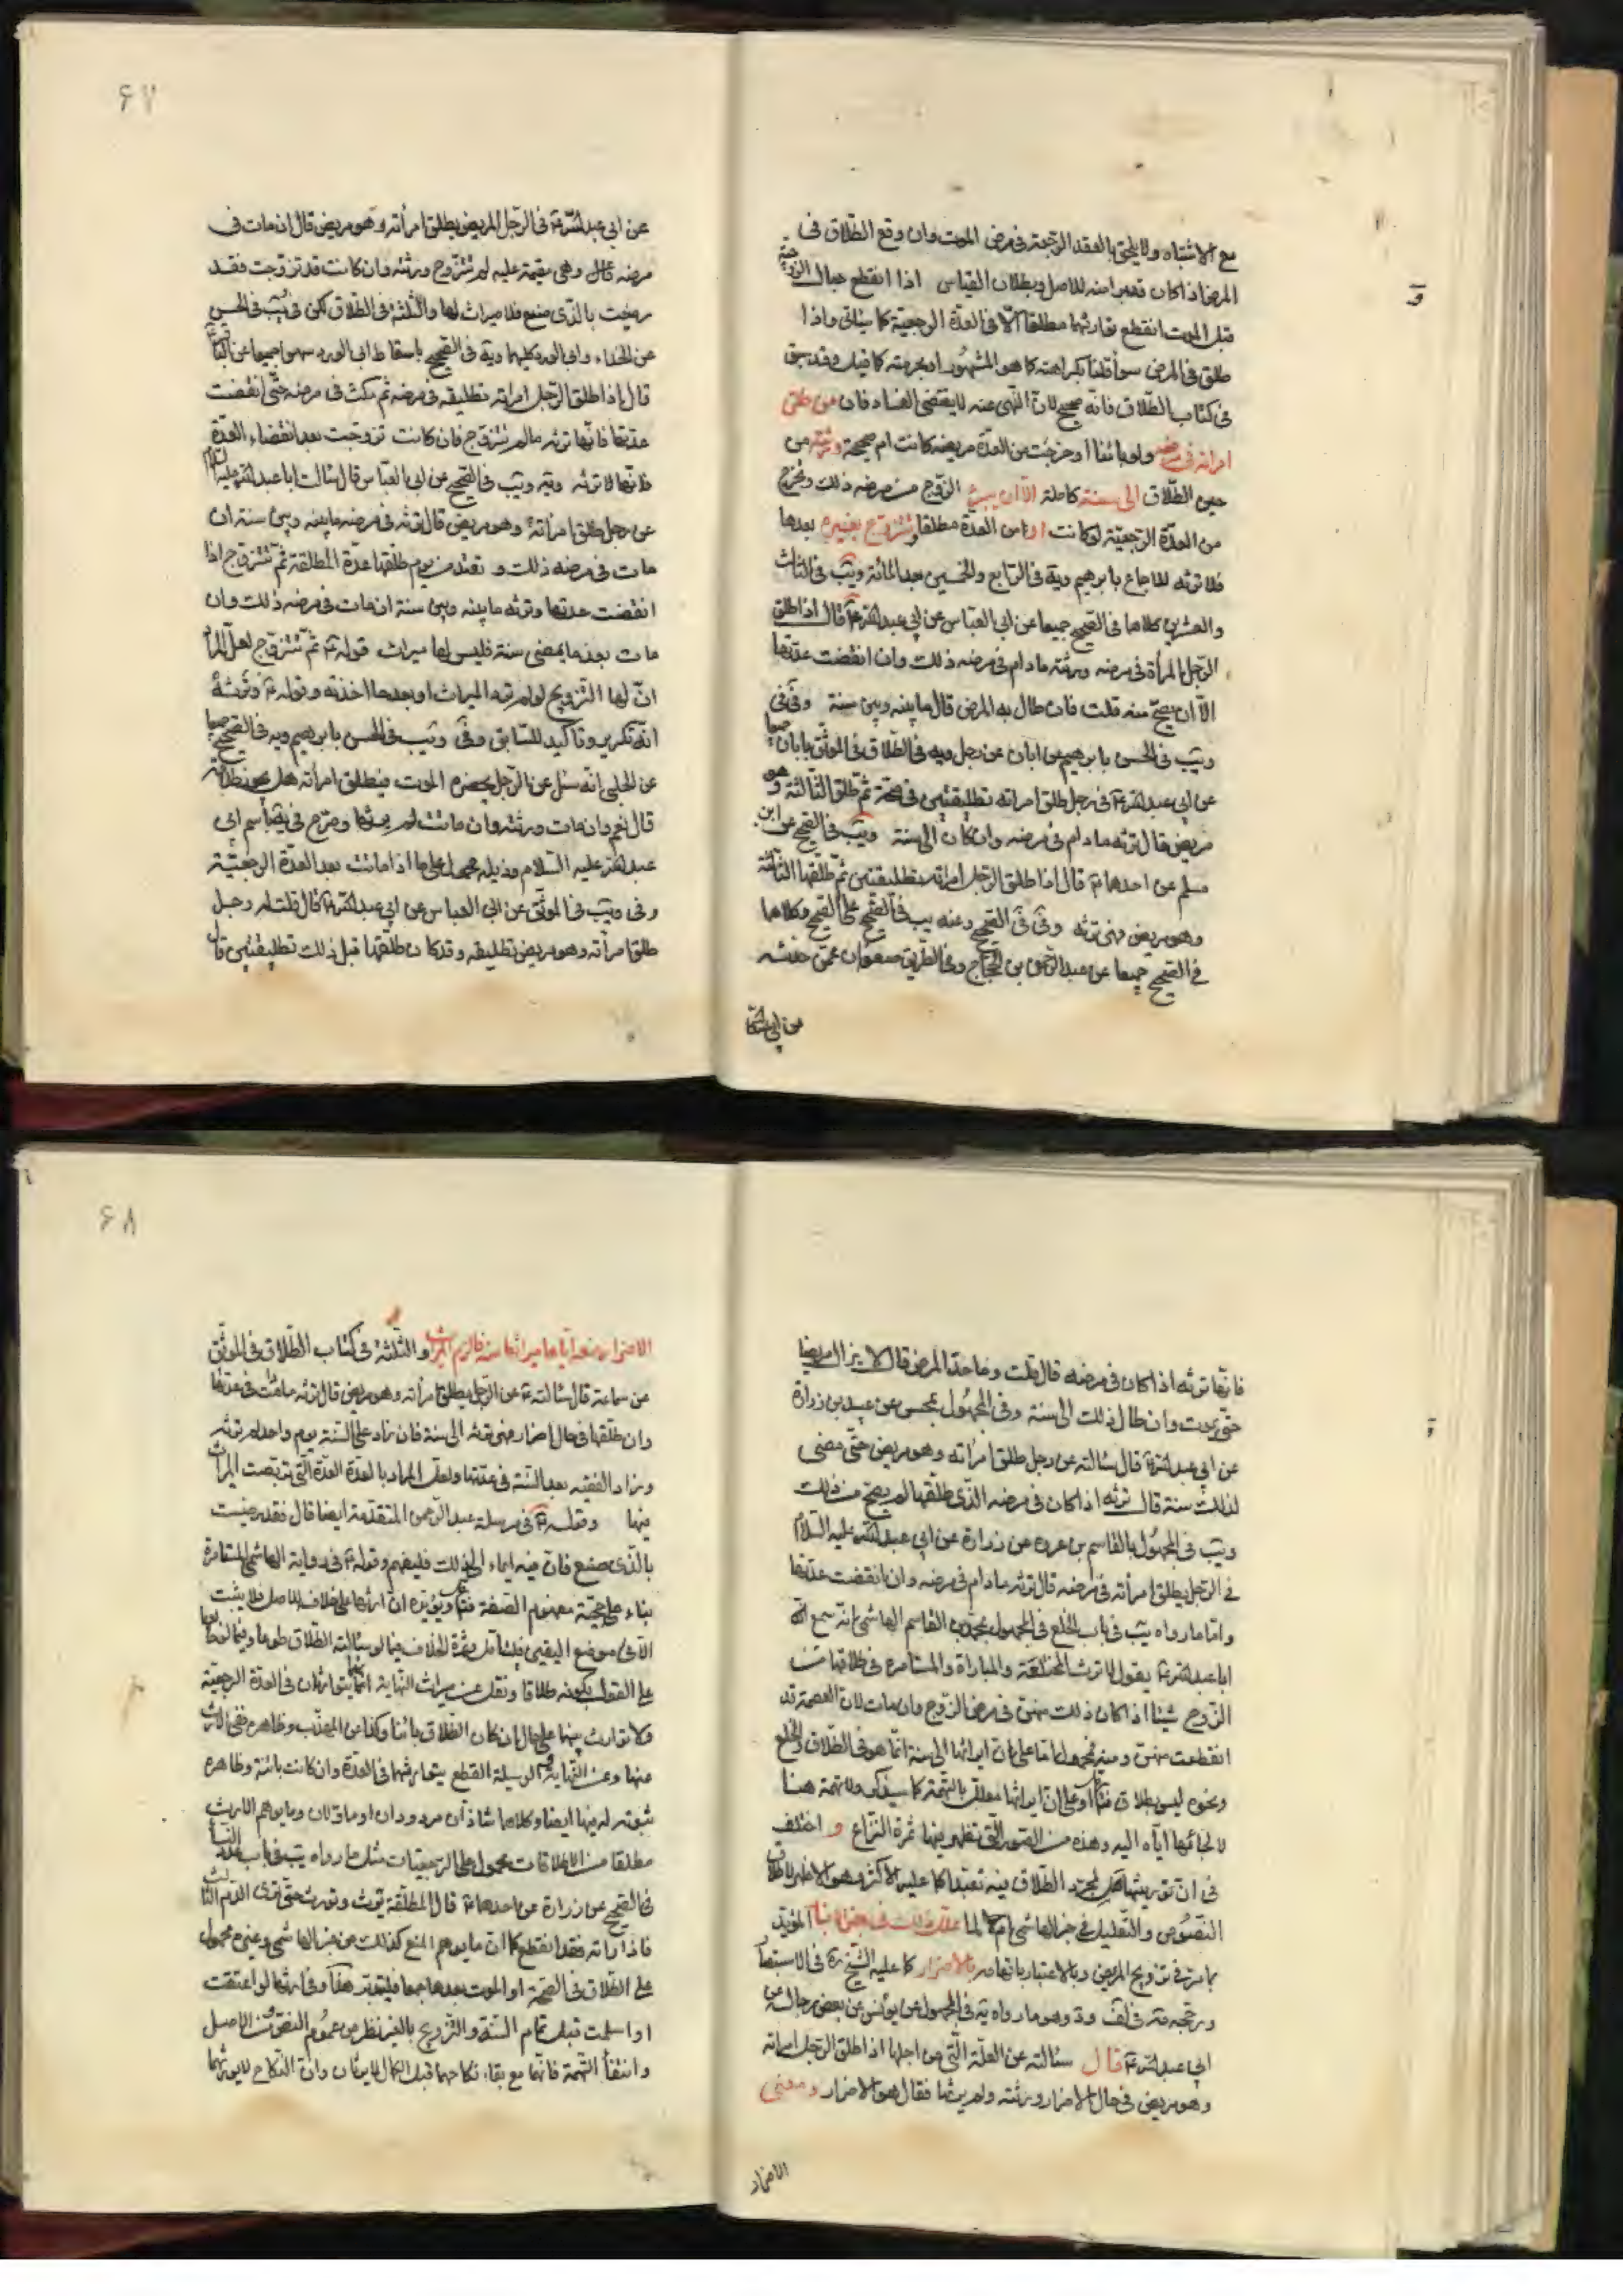 مع الاشتباه ولا يلحق بالعقد الرجعة في مرض الموت وان وقع الطلاق في
المرض اذا كان تعبرا منه للاصل وبطلان القياس اذا انقطع حبال الزوجية
قبل الموت انقطع توارثهما مطلقا الا في العدة الرجعية كما سيأتي واذا
طلق في المرض سوا قلنا بكراهته كما هو المشهور او بحرمته كما قيل وقد سبق
في كتاب الطلاق فانه صحيح لان النهى عنه لا يقتضى الفساد فان من طلق
امراته في مرضه ولو بائنا او خرجت من العدة مريضه كانت ام صحيحة ورثته من
حين الطلاق الى سنة كاملة الا ان يبرئ الزوج من مرضه ذلك وتخرج
من العدة الرجعية لو كانت او من العدة مطلقا وتتزوج بغيره بعدها
فلا ترثه للاجماع بابرهيم ويه في الرابع والخمسين بعد المائة ويب في الثالث
والعشرين كلاهما في الصحيح جميعا عن ابي العباس عن ابي عبد الله ع قال اذا طلق
الرجل المرأة في مرضه ورثته مادام في مرضه ذلك وان انقضت عدتها
الا ان يصح منه قلت فان طال به المرض قال ما بينه وبين سنة وفي في
ويب في الحسن بابرهيم عن ابان عن رجل ويه في الطلاق في الموثق بابان جميعا
عن ابي عبد الله ع في رجل طلق امراته تطليقتين في صحة ثم طلق الثالثة وهو
مريض قال ترثه مادام في مرضه وان كان الى سنة ويب في الصحيح عن ابن
مسلم عن احدهما ع قال اذا طلق الرجل امراته تطليقتين ثم طلقها الثالثة
وهو مريض فهى ترثه وفي في الصحيح وعنه يب في الصحيح على الصحيح وكلاهما
في الصحيح جميعا عن عبد الرحمن بن الحجاج وفي الطريق صفوان عمن حدثه
عن ابي عبد الله
۶۷
عن ابي عبد الله ع في الرجل المريض يطلق امرأته وهو مريض قال ان مات في
مرضه ذلك وهى مقيمة عليه لم تتزوج ورثته وان كانت قد تزوجت فقد
رضيت بالذى صنع فلا ميراث لها والثلثة في الطلاق لكن في يب في الحسن
عن الحذاء وابي الورد كليهما ويه في الصحيح باسقاط ابي الورد سهوا جميعا عن الباقر ع
قال اذا طلق الرجل امراته تطليقه في مرضه ثم مكث في مرضه حتى انقضت
عدتها فانها ترثه مالم تتزوج فان كانت تزوجت بعد انقضاء العدة
فانها لا ترثه ويه ويب في الصحيح عن ابي العباس قال سألت ابا عبد الله عليه السلام
عن رجل طلق امرأته وهو مريض قال ترثه في مرضه ما بينه وبين سنة ان
مات في مرضه ذلك وتعتد من يوم طلقها عدة المطلقة ثم تتزوج اذا
انقضت عدتها وترثه ما بينه وبين سنة ان مات في مرضه ذلك وان
مات بعد ما يمضى سنة فليس لها ميراث قوله ع ثم تتزوج لعل المراد
ان لها التزويج لو لم ترد الميراث او بعدها اخذته وقوله ع وترثه
انه تكرير وتأكيد للسابق وفي ويب في الحسن بابرهيم ويه في الصحيح جميعا
عن الحلبي انه سئل عن الرجل يحضره الموت فيطلق امرأته هل يجوز طلاقه
قال نعم وان مات ورثته وان ماتت لم يرثها وصرح في يه باسم ابي
عبد الله عليه السلام وذيله محمول على ما اذا ماتت بعد العدة الرجعية
وفي ويب في الموثق عن ابي العباس عن ابي عبد الله ع قال قلت له رجل
طلق امرأته وهو مريض تطليقه وقد كان طلقها قبل ذلك تطليقتين قال
فانها ترثه اذا كان في مرضه قال قلت وما حد المرض قال لا يزال مريضا
حتى يموت وان طال ذلك الى سنة وفي المجهول بمحسن عن عبيد بن زرارة
عن ابي عبد الله ع قال سألته عن رجل طلق امرأته وهو مريض حتى مضى
لذلك سنة قال ترثه اذا كان في مرضه الذى طلقها لم يصح من ذلك
ويب في المجهول بالقاسم بن عروه عن زرارة عن ابي عبد الله عليه السلام
في الرجل يطلق امرأته في مرضه قال ترثه مادام في مرضه وان انقضت عدتها
واما ما رواه يب في باب الخلع في المجهول بمحمد بن القاسم الهاشمى انه سمع
ابا عبد الله ع يقول لا ترث المختلعة والمباراة والمستامره في طلاقها من
الزوج شيئا اذا كان ذلك منهن في مرض الزوج وان مات لان العصمة قد
انقطعت منهن ومنه فمحمول اما على ان ايراثها الى سنة انما هو في الطلاق والخلع
ونحوه ليس بطلاق او على ان ايراثها معلل بالتهمة كما سيذكر ولا تهمة هنا
لالجائها اياه اليه وهذه من الصور التى تظهر فيها ثمرة النزاع و اختلف
في ان توريثها هل لمجرد الطلاق فيه تعبدا كما عليه الاكثر وهو الاظهر لاطلاق
النصوص والتعليل في خبر الهاشمى ام لما علل ذلك في بعض المؤيد
بما مر في تزويج المريض وبالاعتبار باتهامه بالاضرار كما عليه الشيخ ره في الاستبصار
ورجحه منه في لف ود وهو ما رواه يه في المجهول عن يونس عن بعض رجاله عن
ابي عبد الله ع قال سئالته عن العلة التى من اجلها اذا طلق الرجل امراته
وهو مريض في حال الاضرار ورثته ولم يرثها فقال هو الاضرار ومعنى
الاضرار
۶۸
الاضرار منعه اياها ميراثها منه فالزم الميراث والثلثة في كتاب الطلاق في الموثق
عن سماعة قال سئالته ع عن الرجل يطلق امرأته وهو مريض قال ترثه مادامت في عدتها
وان طلقها في حال اضرار فهى ترثه الى سنة فان زاد على السنة يوم واحد لم ترثه
وزاد الفقيه بعد السنة في عدتها ولعل المراد بالعدة العدة التى تربصت الميراث
فيها وقوله ع في مرسلة عبد الرحمن المتقدمة ايضا قال فقد رضيت
بالذى صنع فان فيه ايماء الى ذلك فليفهم وقوله ع في رواية الهاشمى المستامرة
بناء على حجية مفهوم الصفة ويؤيده ان ارثها على خلاف الاصل فلا يثبت
الا في موضع اليقين فليتأمل وثمرة الخلاف فيما لو سئالته الطلاق طوعا وفيما لو
على القول بكونه طلاقا ونقل عن ميراث النهاية انهما يتوارثان في العدة الرجعية
ولا توارث بينهما على حال ان كان الطلاق بائنا وكذا عن المهذب وظاهره نفى الارث
عنها وعن النهاية الوسيلة القطع بتوارثهما في العدة وان كانت بائنة وظاهره
ثبوته لديها ايضا وكلاهما شاذان مردودان او ماولان وما يوهم الارث
مطلقا من الاطلاقات محمول على الرجعيات مثل ما رواه يب في باب عدد النساء
في الصحيح عن زرارة عن احدهما ع قال المطلقة ترث وتورث حتى ترى الدم الثالث
فاذا راته فقد انقطع كما ان ما يوهم المنع كذلك من خبر الهاشمى وغيره محمول
على الطلاق في الصحة او الموت بعدهما جمعا فليتدبر هكذا وفي ارثها لو اعتقت
او اسلمت قبل تمام السنة والتزويج بالغير نظر من عموم النص ومن الاصل
وانتفأ التهمة فانها مع بقاء نكاحهما قبل الكمال لا يرثان وان النكاح لا يورثهما